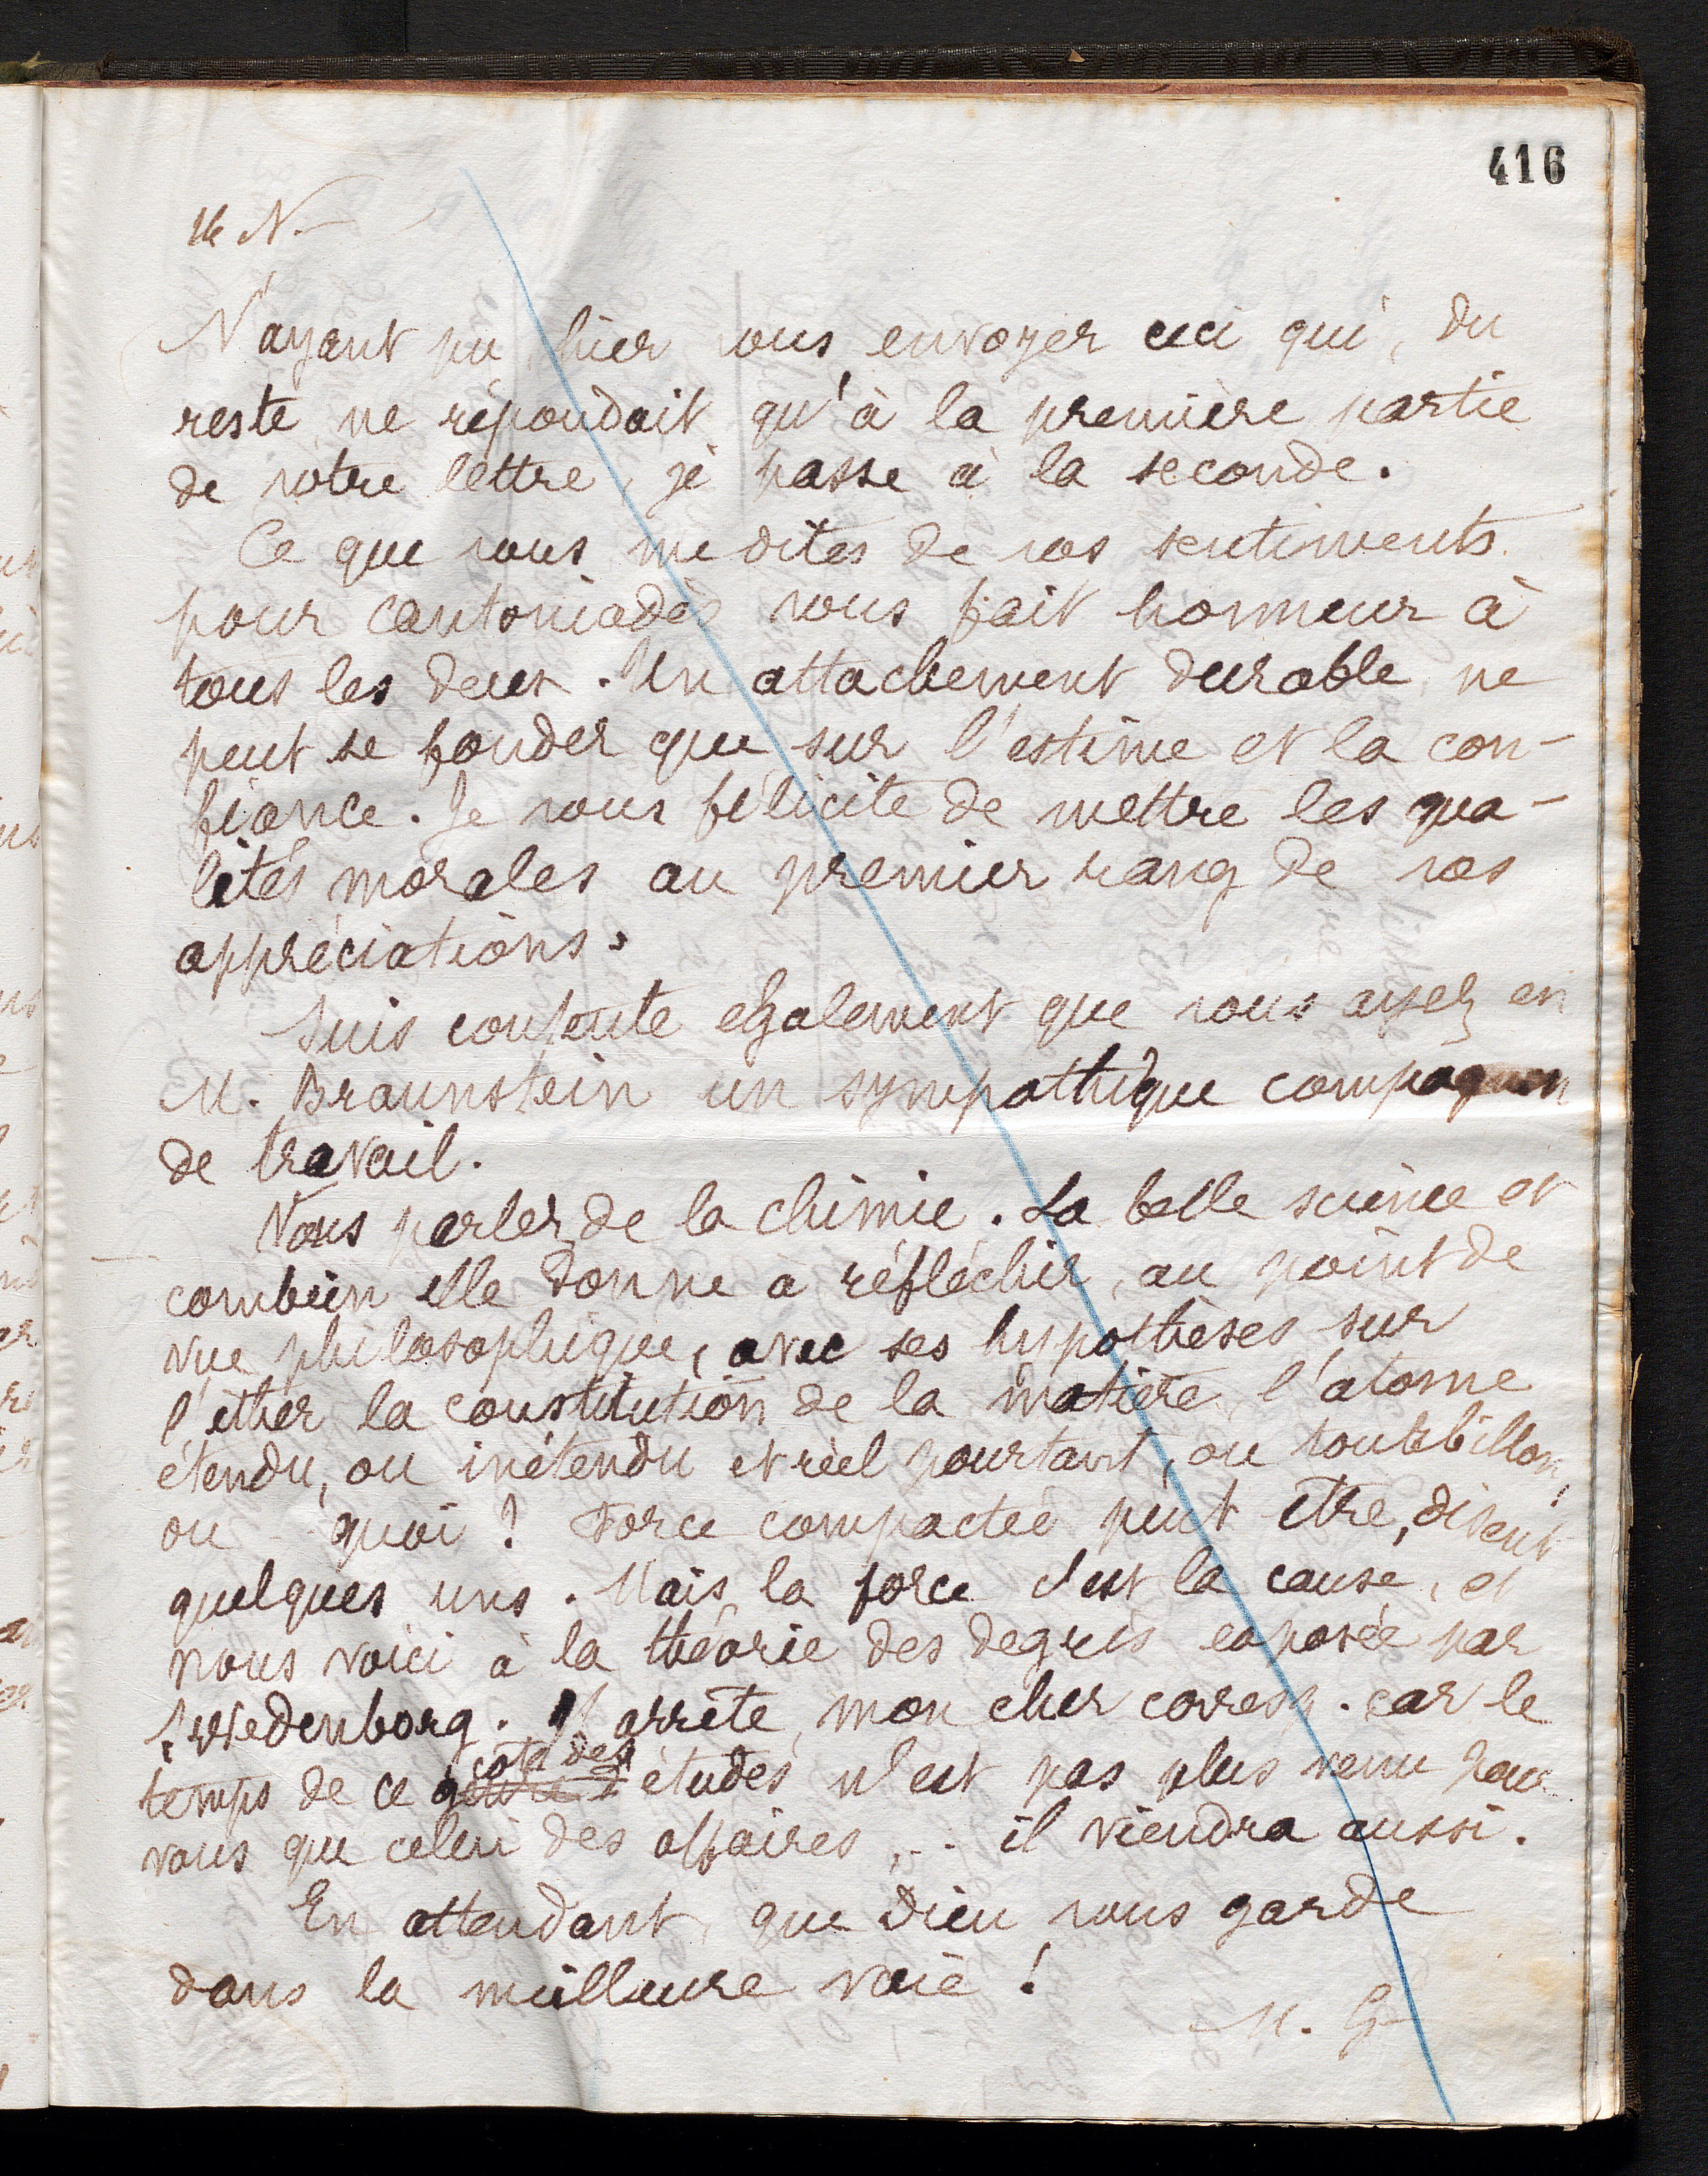 416
16 N.
N'ayant pu hier vous envoyer ceci qui, du
reste ne répondait qu'à la première partie
de votre lettre, je passe à la seconde.
Ce que vous me dites de vos sentiments
pour Cantoniadès vous fait honneur à
tous les deux. Un attachement durable ne
peut se fonder que sur l'estime et la con-
fiance. Je vous félicite de mettre les qua-
lités morales au premier rang de vos
appréciations.
Suis contente également que vous ayez en
M. Braunstein un sympathique compagnon
de travail.
Vous parlez de la chimie. La belle science et
combien elle donne à réfléchir, au point de
vue philosophique, avec ses hypothèses sur
l'éther la constitution de la matière, l'atome
étendu, ou inétendu et réel pourtant, ou tourbillon,
ou quoi ? Force compactée peut être, disent
quelques uns. Mais la force c'est la cause, et
nous voici à la théorie des degrés exposée par
Swedenborg. J'arrête, mon cher corresp. car le
côté des
temps de ce genre d'études n'est pas plus venu pour
vous que celui des affaires, .. il viendra aussi.
En attendant, que Dieu vous garde
dans la meilleure voie !
M. G